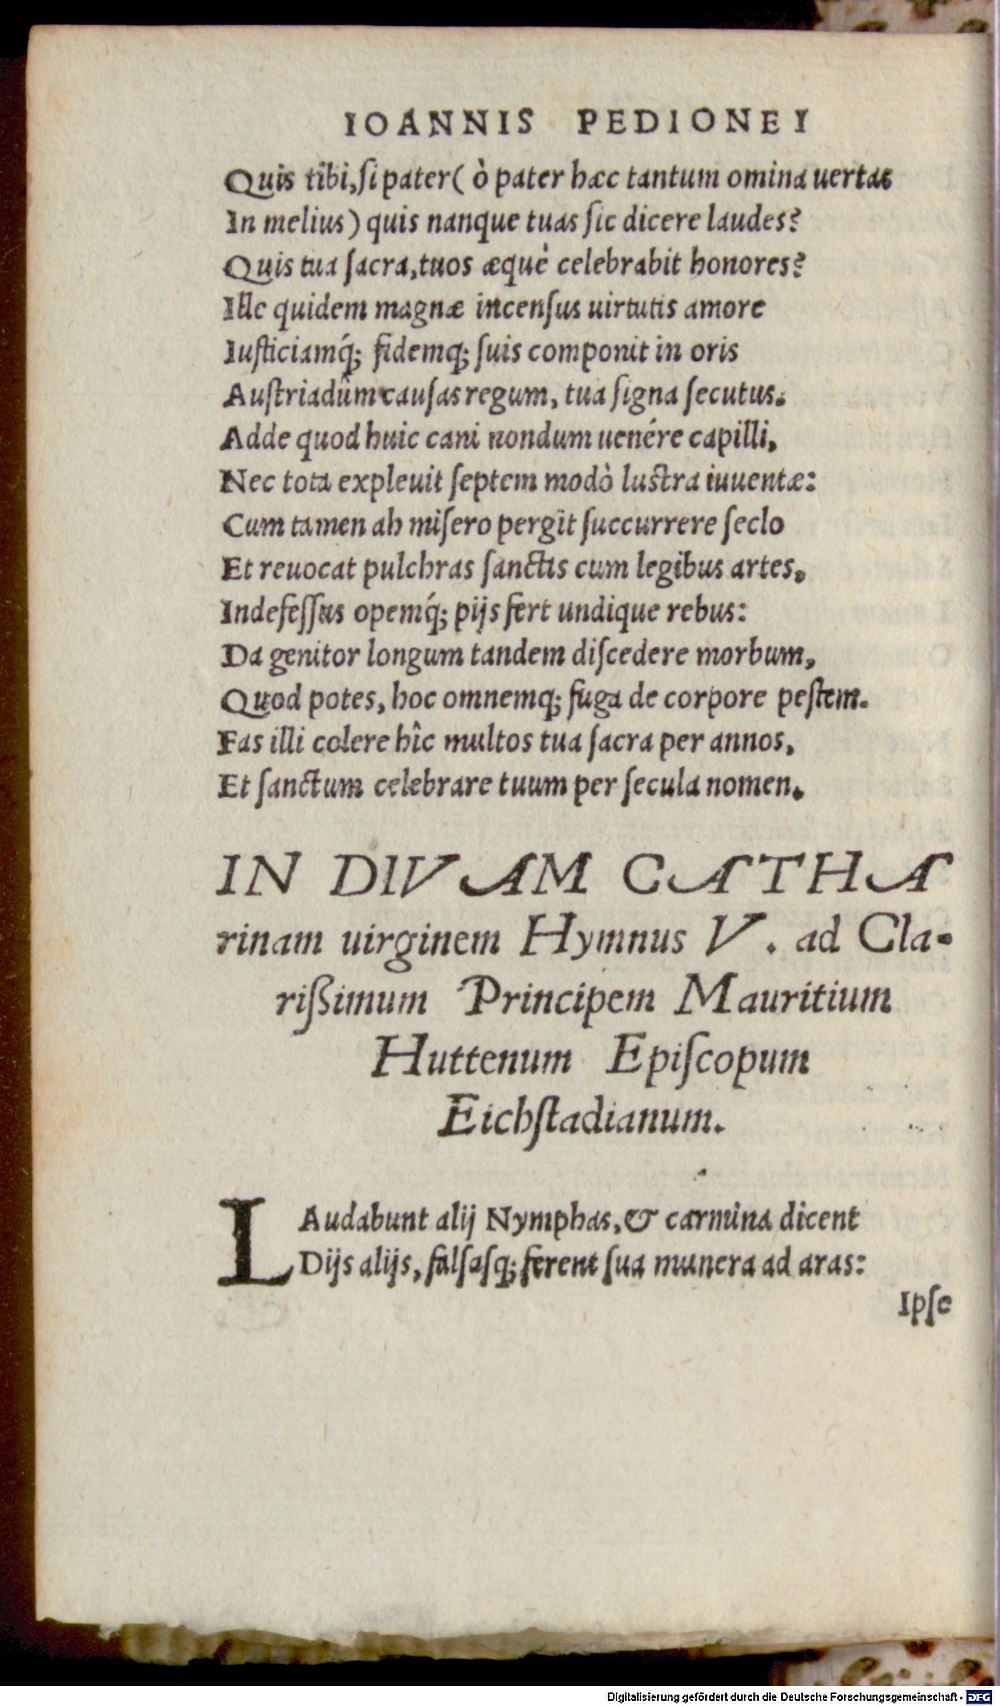 IOANNIS PEDIONEI
Quis tibi, si pater ( ò pater hæc tantum omina uertas
In melius) quis nanque tuas sic dicere laudes?
Quis tua sacra, tuos æquè celebrabit honores?
Ille quidem magnæ incensus uirtutis amore
Iusticiamq́; fidemq; suis componit in oris
Austriadûm causas regum, tua signa secutus.
Adde quod huic cani nondum uenére capilli,
Nec tota expleuit septem modò lustra iuuentæ:
Cum tamen ah misero pergit succurrere seclo
Et reuocat pulchras sanctis cum legibus artes,
Indefessus opemq́; pijs fert undique rebus:
Da genitor longum tandem discedere morbum,
Quod potes, hoc omnemq; fuga de corpore pestem.
Fas illi colere hîc multos tua sacra per annos,
Et sanctum celebrare tuum per secula nomen.
IN DIVAM CATHA
rinam uirginem Hymnus V. ad Cla-
rißimum Principem Mauritium
Huttenum Episcopum
Eichstadianum.
LAudabunt alij Nymphas, & carmina dicent
Dijs alijs, falsasq; ferent sua munera ad aras:
Ipse
Digitalisierung gefördert durch die Deutsche Forschungsgemeinschaft - DFG